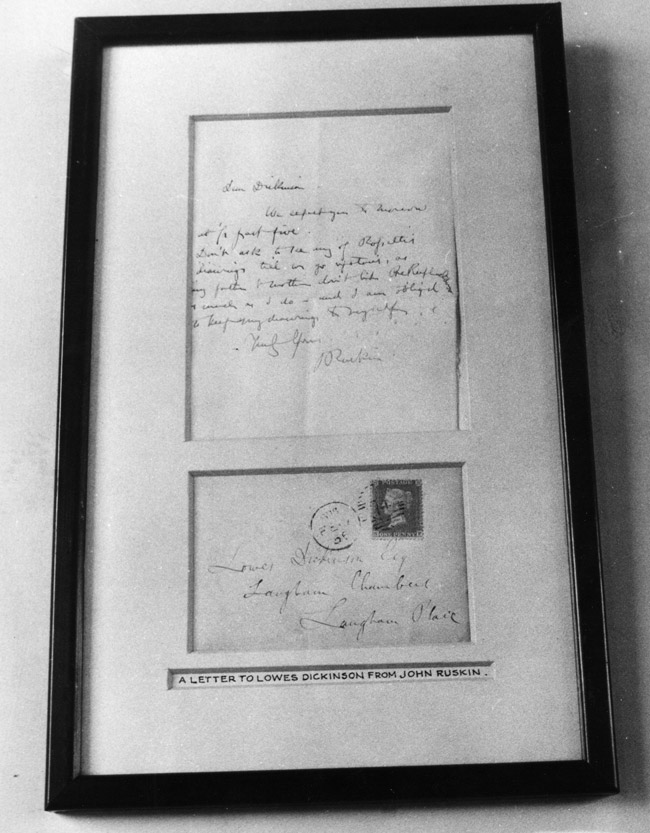 Dear Dickinson
We expect you to morrow
at ½ past five.
Don't ask to see any of Rossettis
drawings till we go upstairs, as
my father & mother don't like
so much as I do – and I am obliged
to keep my drawings to myself
Truly Yours
J Ruskin
POSTAGE
ONE PENNY
Lowes Dickinson Esq
Langham Chambers
Langham Place
A LETTER TO LOWES DICKINSON FROM JOHN RUSKIN.